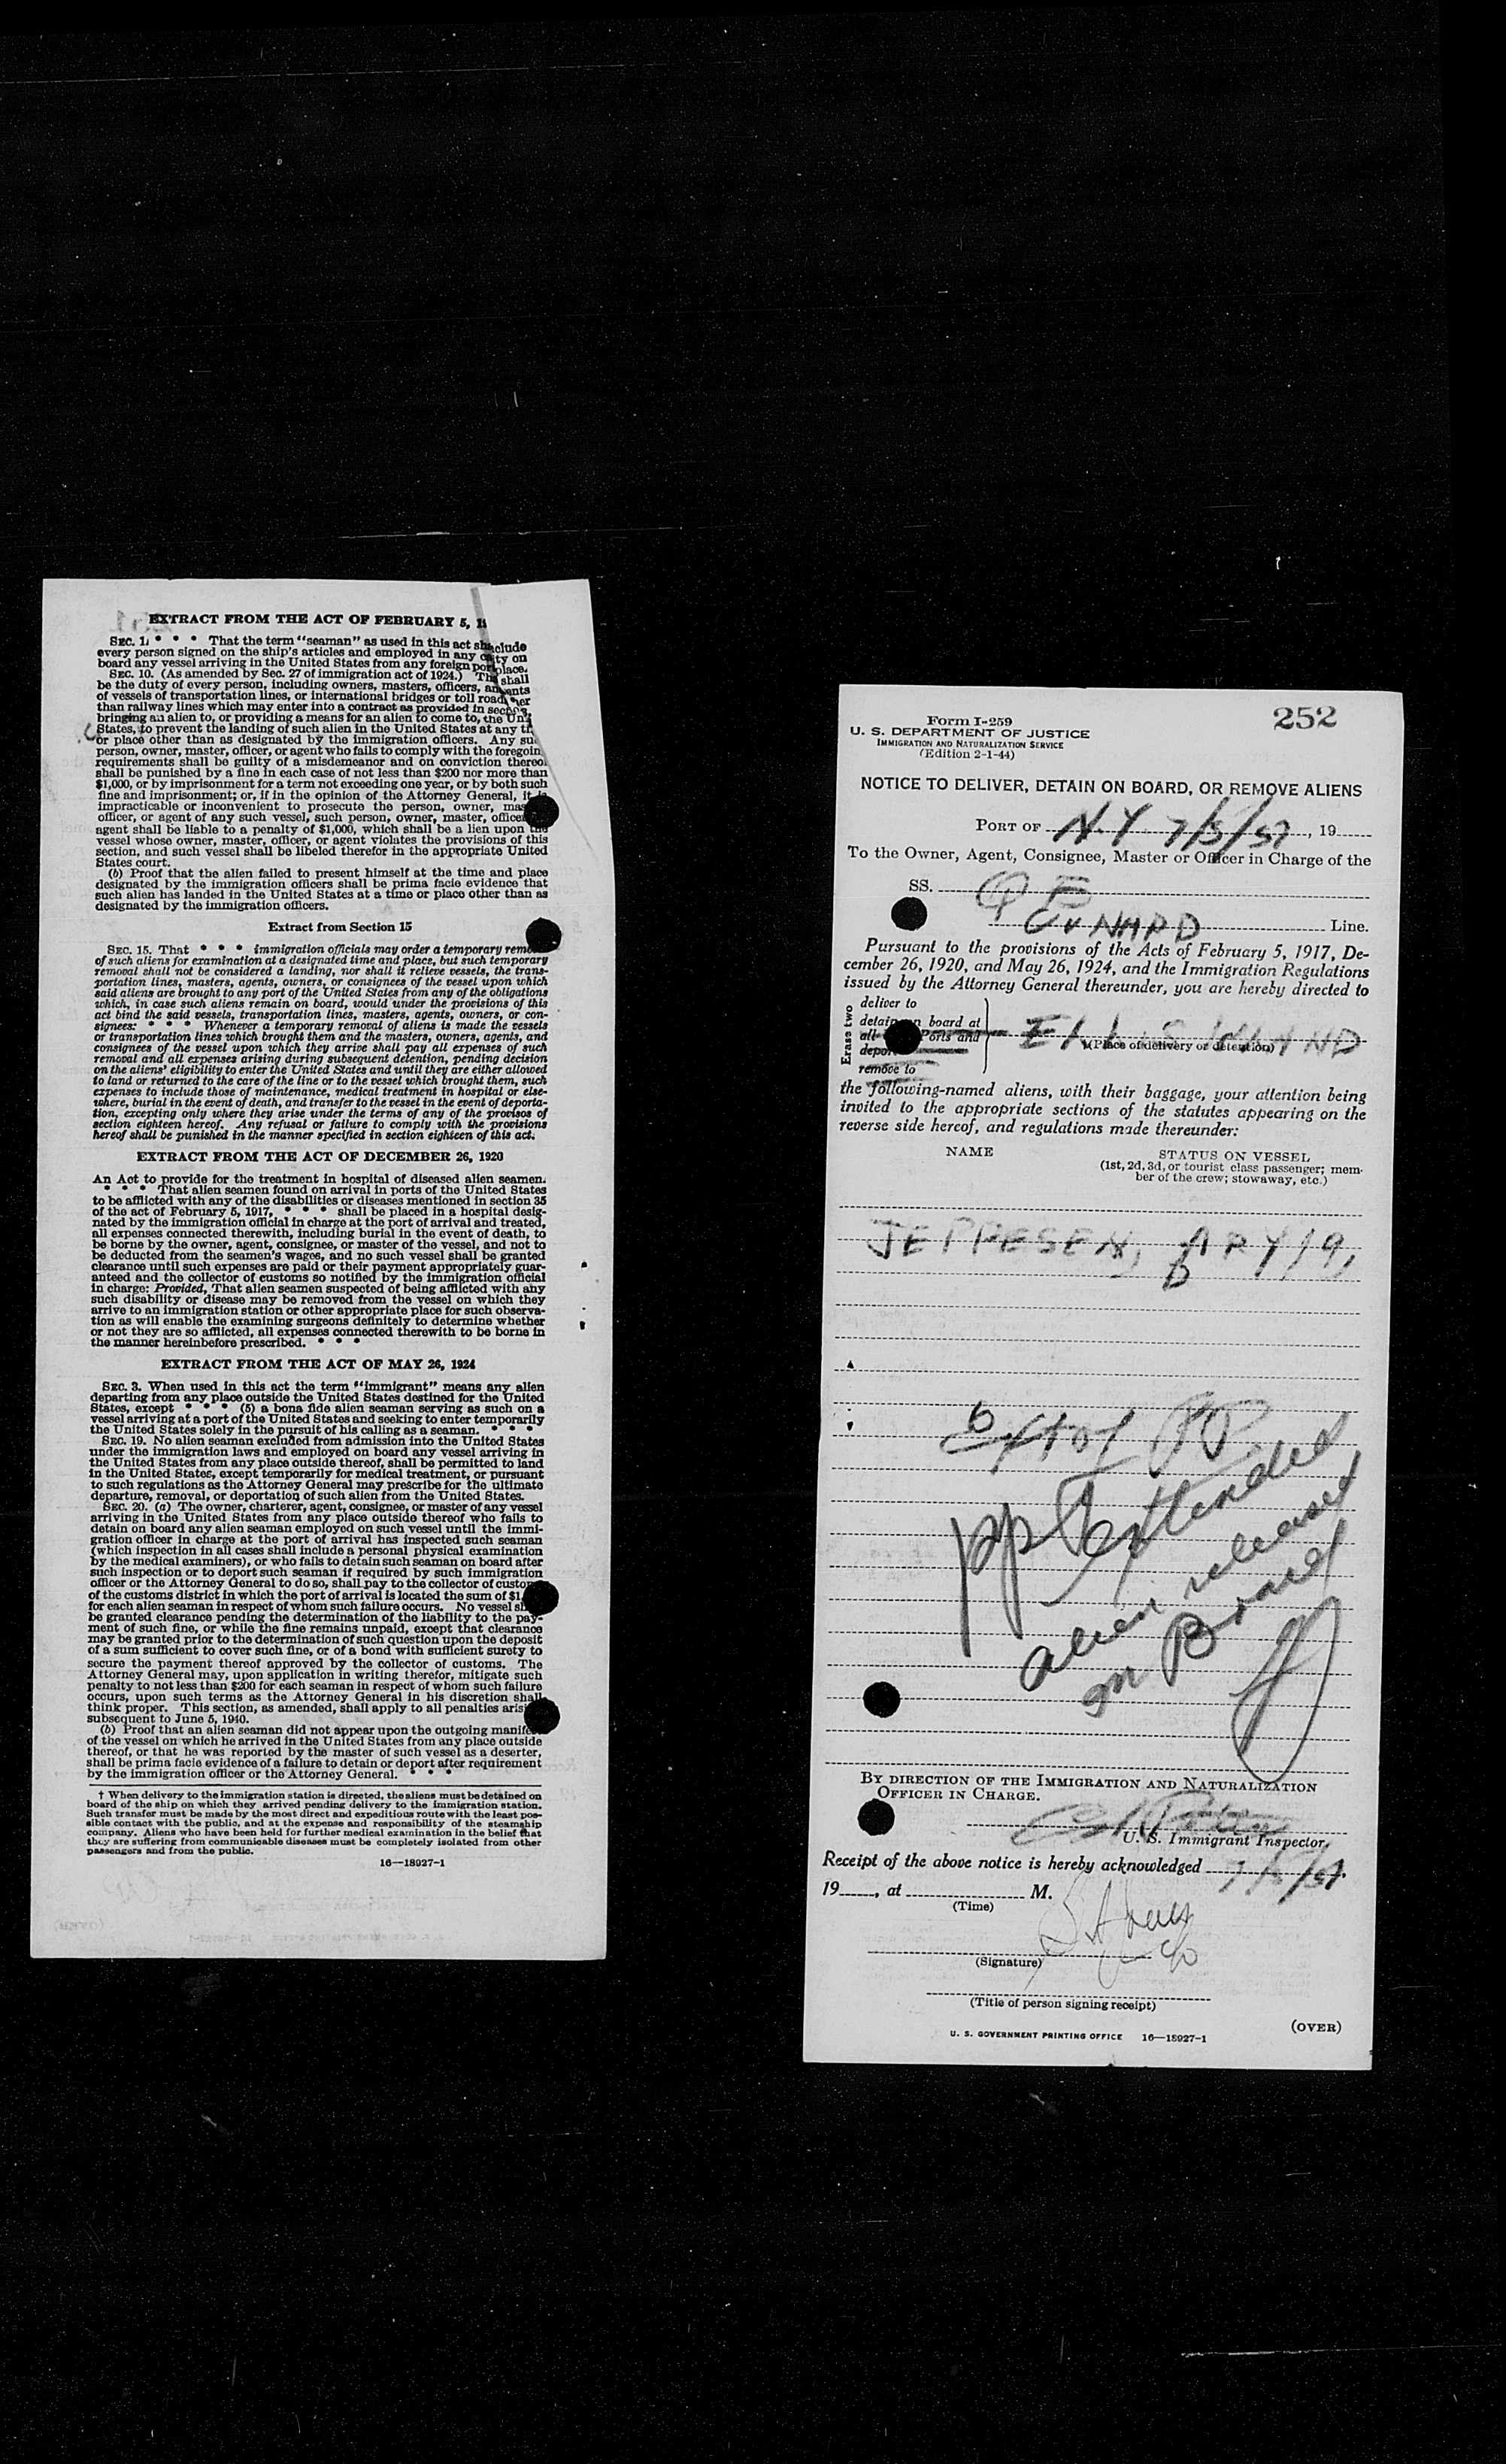 EXTRACT FROM THE ACT OF FEBRUARY 5, 1
SEC. 1. * * * That the term "seaman" as used in this act sh clude
every person signed on the ship's articles and employed in any c ity on
board any vessel arriving in the United States from any foreign port place.
SEC. 10. (As amended by Sec. 27 of immigration act of 1924.) Th shall
be the duty of every person, including owners, masters, officers, an ents
of vessels of transportation lines, or international bridges or toll road er
than railway lines which may enter into a contract as provided in sec 3,
bringing an alien to, or providing a means for an alien to come to, the Un
States, to prevent the landing of such alien in the United States at any ti
or place other than as designated by the immigration officers. Any su
person, owner, master, officer, or agent who fails to comply with the foregoin
requirements shall be guilty of a misdemeanor and on conviction thereof
shall be punished by a fine in each case of not less than $200 nor more than
$1,000, or by imprisonment for a term not exceeding one year, or by both such
fine and imprisonment; or, if in the opinion of the Attorney General, it is
impracticable or inconvenient to prosecute the person, owner, mas
officer, or agent of any such vessel, such person, owner, master, office
agent shall be liable to a penalty of $1,000, which shall be a lien upon the
vessel whose owner, master, officer, or agent violates the provisions of this
section, and such vessel shall be libeled therefor in the appropriate United
States court.
(b) Proof that the alien failed to present himself at the time and place
designated by the immigration officers shall be prima facie evidence that
such alien has landed in the United States at a time or place other than as
designated by the immigration officers.
Extract from Section 15
SEC. 15. That * * * immigration officials may order a temporary remo
of such aliens for examination at a designated time and place, but such temporary
removal shall not be considered a landing, nor shall it relieve vessels, the trans-
portation lines, masters, agents, owners, or consignees of the vessel upon which
said aliens are brought to any port of the United States from any of the obligations
which, in case such aliens remain on board, would under the provisions of this
act bind the said vessels, transportation lines, masters, agents, owners, or con-
signees: * * * Whenever a temporary removal of aliens is made the vessels
or transportation lines which brought them and the masters, owners, agents, and
consignees of the vessel upon which they arrive shall pay all expenses of such
removal and all expenses arising during subsequent detention, pending decision
on the aliens' eligibility to enter the United States and until they are either allowed
to land or returned to the care of the line or to the vessel which brought them, such
expenses to include those of maintenance, medical treatment in hospital or else-
where, burial in the event of death, and transfer to the vessel in the event of deporta-
tion, excepting only where they arise under the terms of any of the provisos of
section eighteen hereof. Any refusal or failure to comply with the provisions
hereof shall be punished in the manner specified in section eighteen of this act.
EXTRACT FROM THE ACT OF DECEMBER 26, 1920
An Act to provide for the treatment in hospital of diseased alien seamen.
* * * That alien seamen found on arrival in ports of the United States
to be afflicted with any of the disabilities or diseases mentioned in section 35
of the act of February 5, 1917, * * * shall be placed in a hospital desig-
nated by the immigration official in charge at the port of arrival and treated,
all expenses connected therewith, including burial in the event of death, to
be borne by the owner, agent, consignee, or master of the vessel, and not to
be deducted from the seamen's wages, and no such vessel shall be granted
clearance until such expenses are paid or their payment appropriately guar-
anteed and the collector of customs so notified by the immigration official
in charge: Provided, That alien seamen suspected of being afflicted with any
such disability or disease may be removed from the vessel on which they
arrive to an immigration station or other appropriate place for such observa-
tion as will enable the examining surgeons definitely to determine whether
or not they are so afflicted, all expenses connected therewith to be borne in
the manner hereinbefore prescribed. * * *
EXTRACT FROM THE ACT OF MAY 26, 1924
SEC. 3. When used in this act the term "immigrant" means any alien
departing from any place outside the United States destined for the United
States, except * * * (5) a bona fide alien seaman serving as such on a
vessel arriving at a port of the United States and seeking to enter temporarily
the United States solely in the pursuit of his calling as a seaman. * * *
SEC. 19. No alien seaman excluded from admission into the United States
under the immigration laws and employed on board any vessel arriving in
the United States from any place outside thereof, shall be permitted to land
in the United States, except temporarily for medical treatment, or pursuant
to such regulations as the Attorney General may prescribe for the ultimate
departure, removal, or deportation of such alien from the United States.
SEC. 20. (a) The owner, charterer, agent, consignee, or master of any vessel
arriving in the United States from any place outside thereof who fails to
detain on board any alien seaman employed on such vessel until the immi-
gration officer in charge at the port of arrival has inspected such seaman
(which inspection in all cases shall include a personal physical examination
by the medical examiners), or who fails to detain such seaman on board after
such inspection or to deport such seaman if required by such immigration
officer or the Attorney General to do so, shall pay to the collector of custom
of the customs district in which the port of arrival is located the sum of $1,
for each alien seaman in respect of whom such failure occurs. No vessel sh
be granted clearance pending the determination of the liability to the pay-
ment of such fine, or while the fine remains unpaid, except that clearance
may be granted prior to the determination of such question upon the deposit
of a sum sufficient to cover such fine, or of a bond with sufficient surety to
secure the payment thereof approved by the collector of customs. The
Attorney General may, upon application in writing therefor, mitigate such
penalty to not less than $200 for each seaman in respect of whom such failure
occurs, upon such terms as the Attorney General in his discretion shall
think proper. This section, as amended, shall apply to all penalties arisi
subsequent to June 5, 1940.
(b) Proof that an alien seaman did not appear upon the outgoing manife
of the vessel on which he arrived in the United States from any place outside
thereof, or that he was reported by the master of such vessel as a deserter,
shall be prima facie evidence of a failure to detain or deport after requirement
by the immigration officer or the Attorney General. * * *
† When delivery to the immigration station is directed, the aliens must be detained on
board of the ship on which they arrived pending delivery to the immigration station.
Such transfer must be made by the most direct and expeditious route with the least pos-
sible contact with the public, and at the expense and responsibility of the steamship
company. Aliens who have been held for further medical examination in the belief that
they are suffering from communicable diseases must be completely isolated from other
passengers and from the public.
16—18927-1
252
Form I-259
U. S. DEPARTMENT OF JUSTICE
IMMIGRATION AND NATURALIZATION SERVICE
(Edition 2-1-44)
NOTICE TO DELIVER, DETAIN ON BOARD, OR REMOVE ALIENS
PORT OF N.Y. 7/5/57, 19
To the Owner, Agent, Consignee, Master or Officer in Charge of the
SS. Q E
CUNARD Line.
Pursuant to the provisions of the Acts of February 5, 1917, De-
cember 26, 1920, and May 26, 1924, and the Immigration Regulations
issued by the Attorney General thereunder, you are hereby directed to
Erase two
deliver to
detain on board at
all Ports and
deport
remove to
ELLIS ISLAND
(Place of delivery or detention)
the following-named aliens, with their baggage, your attention being
invited to the appropriate sections of the statutes appearing on the
reverse side hereof, and regulations made thereunder:
NAME
STATUS ON VESSEL
(1st, 2d, 3d, or tourist class passenger; mem-
ber of the crew; stowaway, etc.)
JEPPESEN,
PP
PP extended
alien released
on Board
BY DIRECTION OF THE IMMIGRATION AND NATURALIZATION
OFFICER IN CHARGE.
U. S. Immigrant Inspector.
Receipt of the above notice is hereby acknowledged 7/5/57.
19, at M.
(Time)
(Signature)
(Title of person signing receipt)
U. S. GOVERNMENT PRINTING OFFICE 16—18927-1
(OVER)